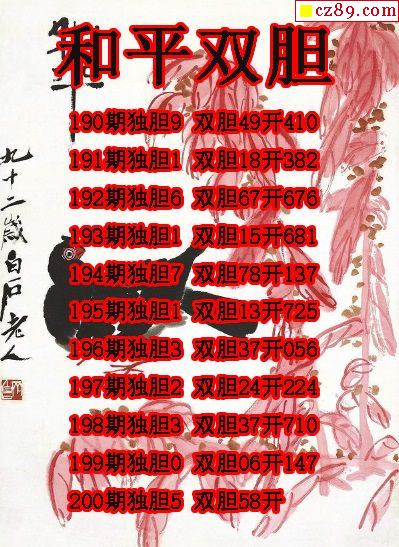 cz89.com
和平双胆
190期独胆9 双胆49开410
191期独胆1 双胆18开382
192期独胆6 双胆67开676
193期独胆1 双胆15开681
194期独胆7 双胆78开137
195期独胆1 双胆13开725
196期独胆3 双胆37开056
197期独胆2 双胆24开224
198期独胆3 双胆37开710
199期独胆0 双胆06开147
200期独胆5 双胆58开
九十二岁白石老人